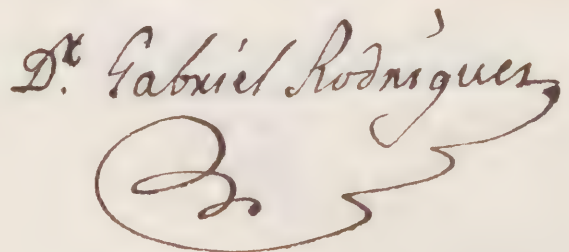 Dr. Gabriel Rodriguez